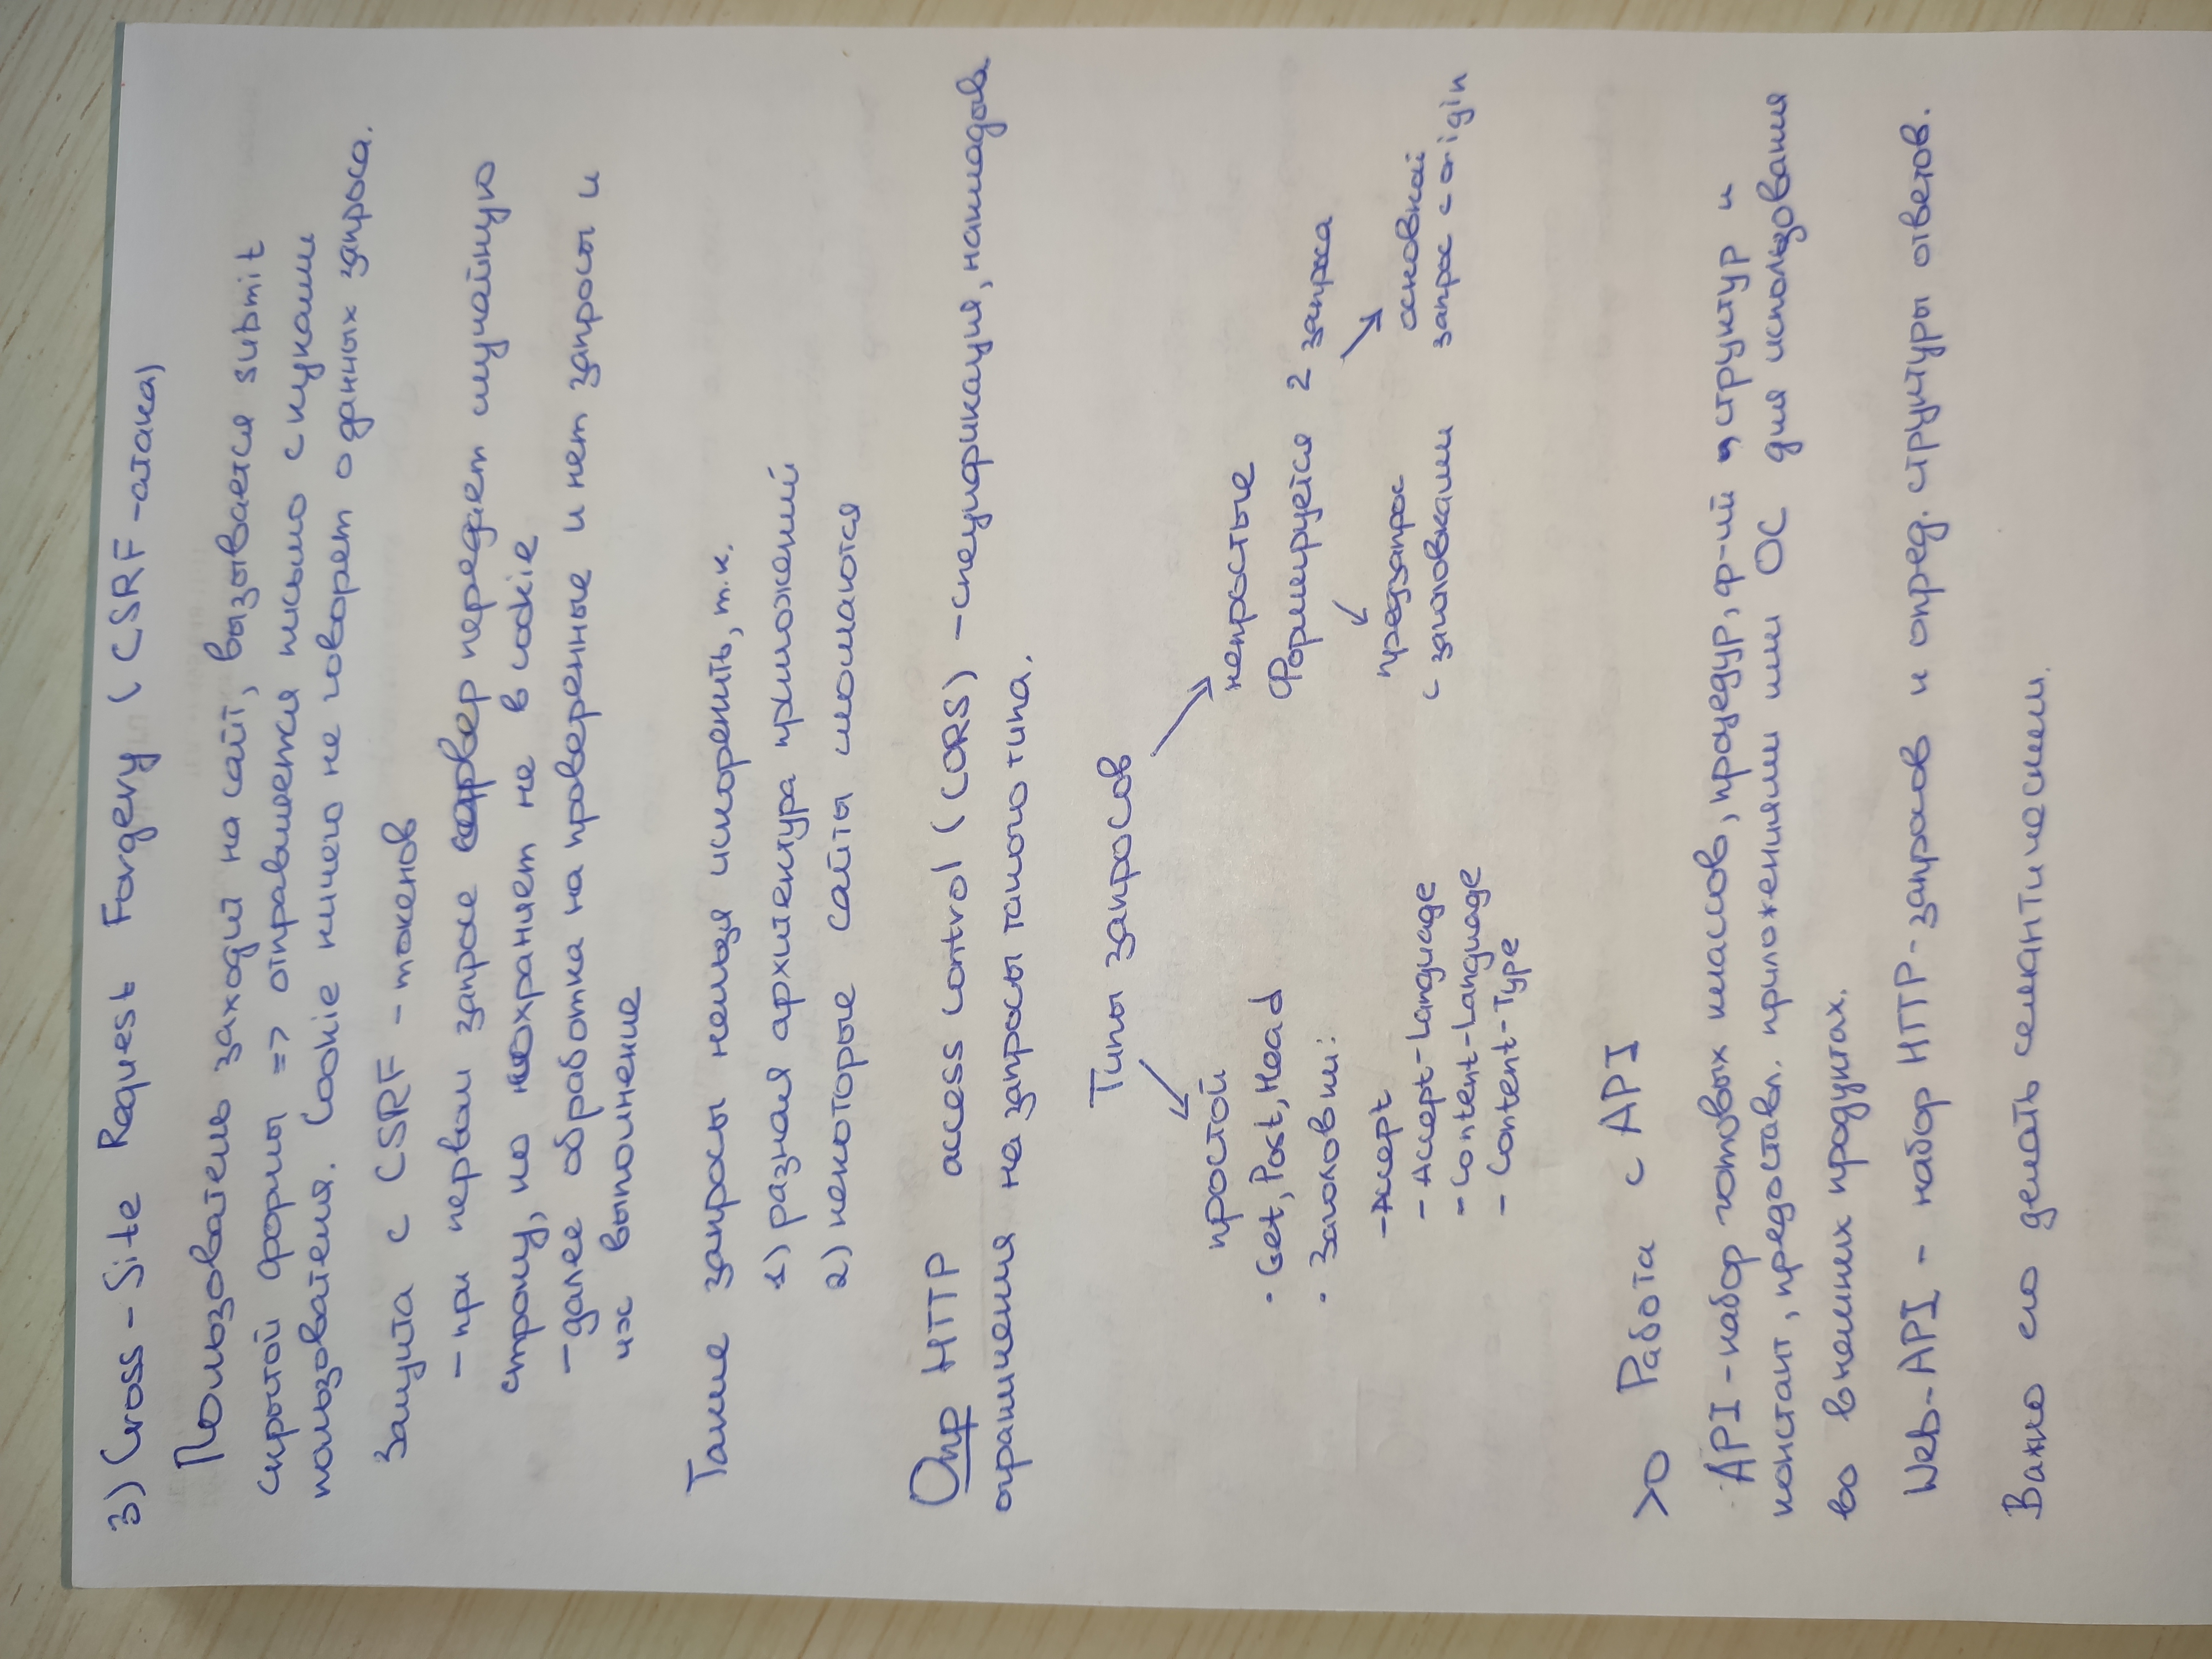 3) Cross-Site Request Forgery (CSRF-атака)
Пользователь заходит на сайт, вызывается submit
скрытой формы => отправляется письмо с куками
пользователя. Cookie ничего не говорет о данных запроса.
Защита с CSRF-токенов
- при первом запросе сервер передает случайную
строку, но сохраняет не в cookie
- далее обработка на проверенные и нет запросы и
их выполнение
Такие запросы нельзя искоренить, т.к.
1) разная архитектура приложений
2) некоторые сайты сломаются
Опр HTTP access control (CORS) - спецификация, накладыв
ограничения на запросы такого типа.
Типы запросов
простой
непростые
• Get, Post, Head
Формируется 2 запроса
• Заголовки:
- Accept
предзапрос
основной
- Accept-Language
с заголовками
запрос с origin
- Content-Language
- Content-Type
Работа с API
API - набор готовых классов, процедур, ф-ий, структур и
констант, предоставл. приложениями или ОС для использования
во внешних продуктах.
Web-API - набор HTTP-запросов и опред. структуры ответов.
Важно его делать семантическим.